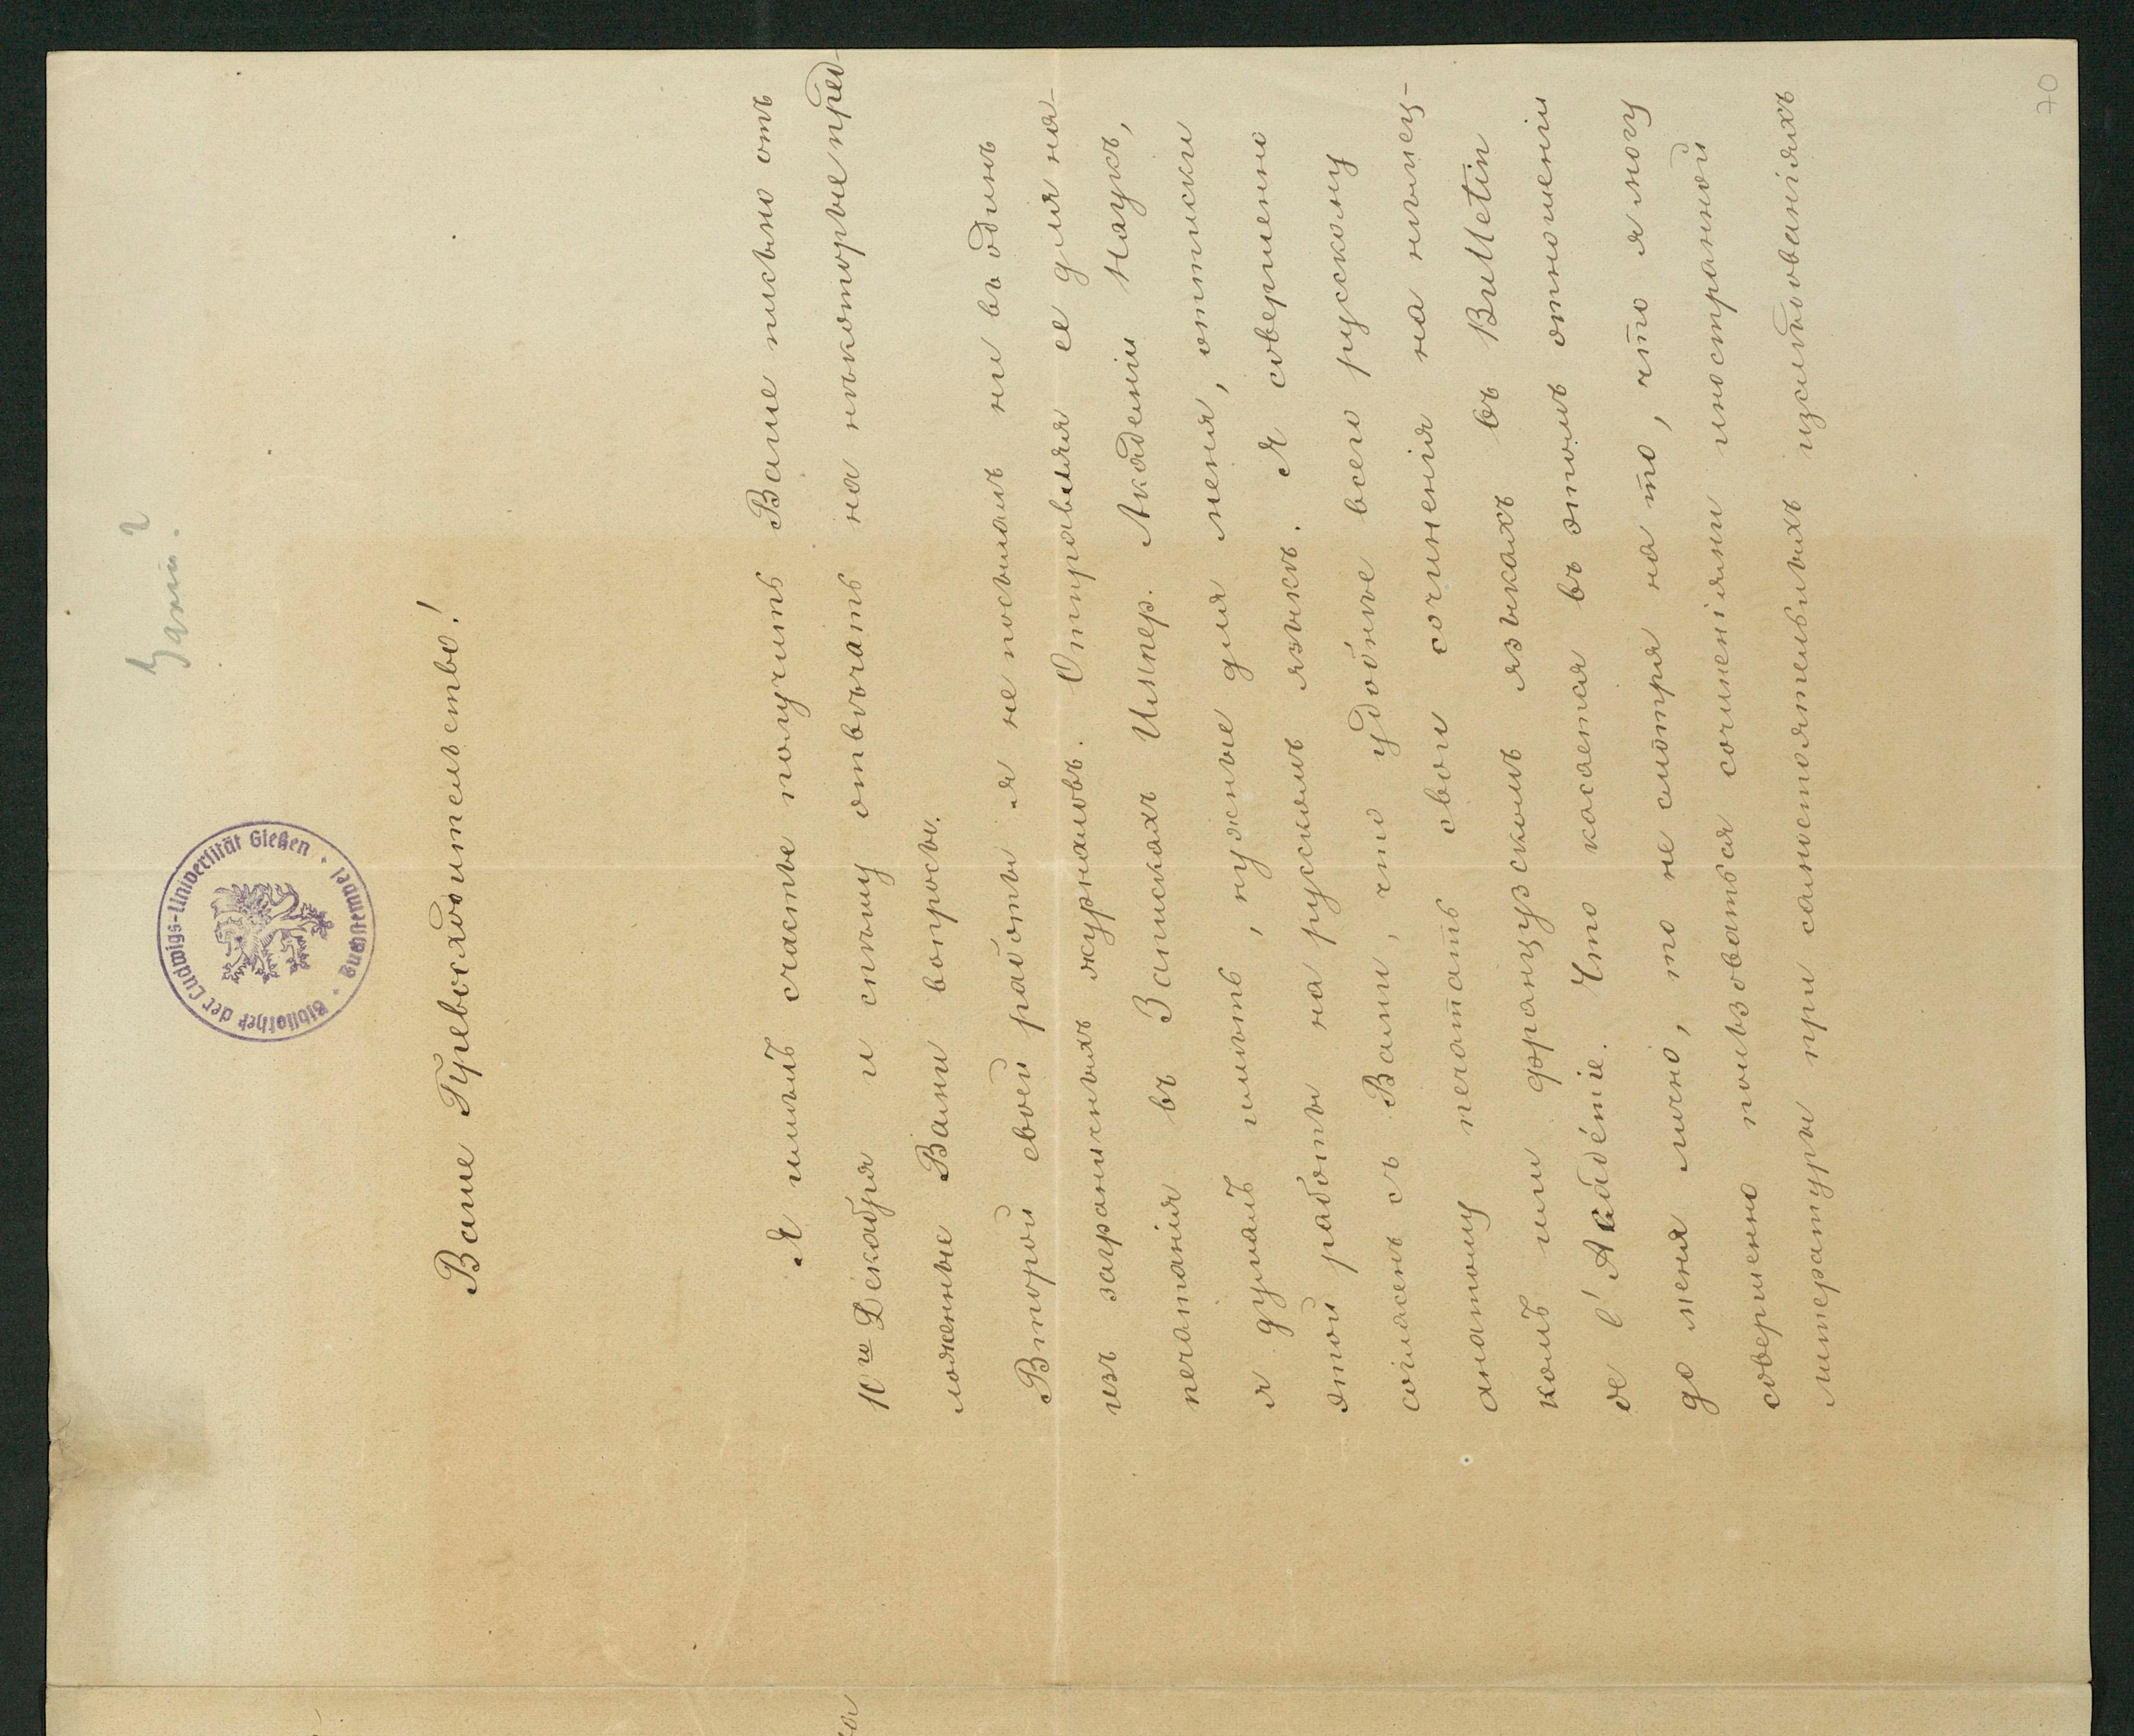 70
Bibliothek der Ludwigs-Universität Gießen · Buchstempel ·
Ваше Превосходительство!
Я имѣлъ счастье получить Ваше письмо отъ
10го Декабря и спѣшу отвѣчать на нѣкоторые пред-
ложенные Вами вопросы.
Второй своей работы я не посылалъ ни въ одинъ
изъ заграничныхъ журналовъ. Отправляя ее для на-
печатанія въ Запискахъ Импер. Академіи Наукъ,
я думалъ имѣть, нужные для меня, оттиски
этой работы на русскомъ языкѣ. Я совершенно
согласенъ съ Вами, что удобнѣе всего русскому
анатому печатать свои сочиненія на нѣмец-
комъ или французскомъ языкахъ въ Bulletin
de l'Académie. Что касается въ этомъ отношеніи
до меня лично, то не смотря на то, что я могу
совершенно пользоваться сочиненіями иностранной
литературы при самостоятельныхъ изслѣдованіяхъ